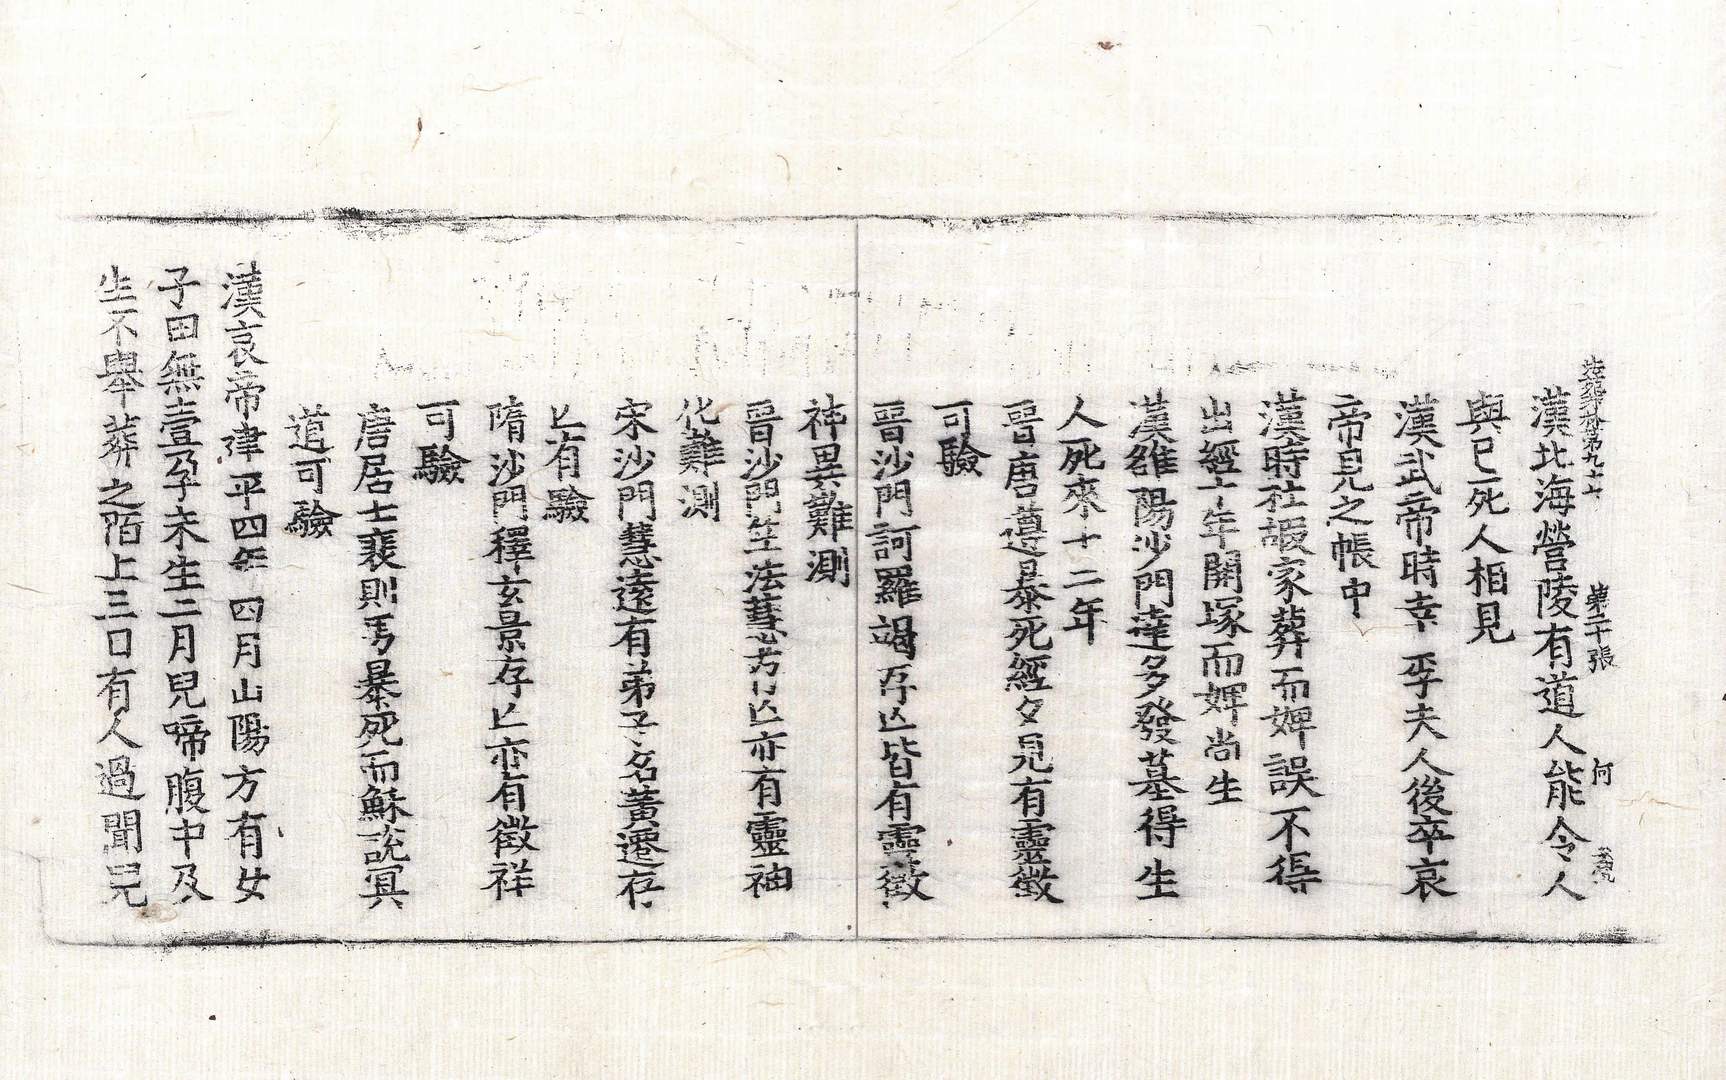 法苑珠林第九十七 第二十張 何
漢北海營陵有道人能令人
與已死人相見
漢武帝時幸李夫人後卒哀
帝見之帳中
漢時杜嘏家葬而婢誤不得
出經十年開塚而婢尚生
漢雒陽沙門達多發墓得生
人死來十二年
晉唐遵暴死經夕見有靈徵
可驗
晉沙門訶羅竭存亡皆有靈徵
神異難測
晉沙門竺法慧存亡亦有靈神
化難測
宋沙門慧遠有弟子名黃遷存
亡有驗
隋沙門釋玄景存亡亦有徵祥
可驗
唐居士裴則男暴死而穌說冥
道可驗
漢哀帝建平四年四月山陽方有女
子田無壹孕未生二月兒啼腹中及
生不舉葬之陌上三日有人過聞兒